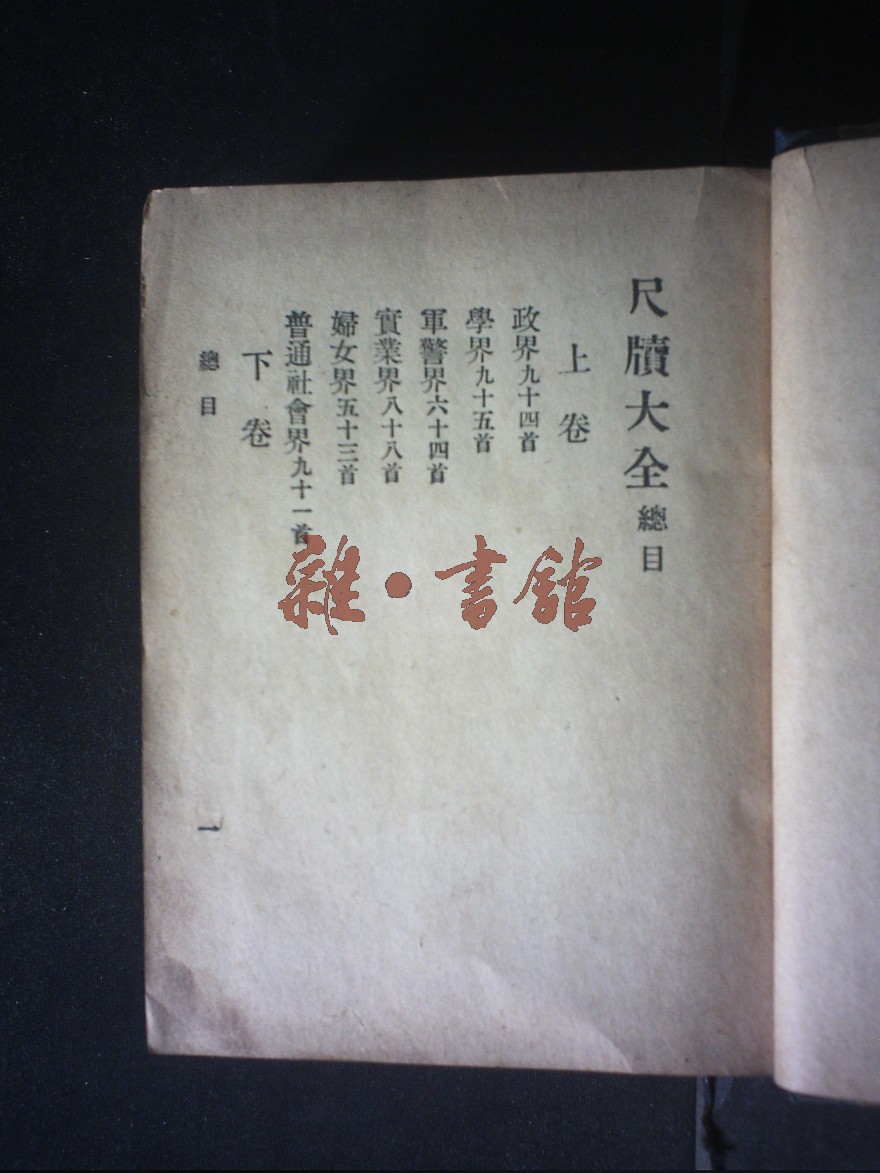 尺牘大全總目
上卷
政界九十四首
學界九十五首
軍警界六十四首
實業界八十八首
婦女界五十三首
普通社會界九十一首
下卷
總目
一
雜·書館